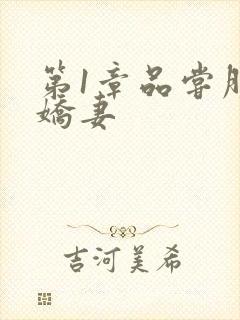 第1章品尝肥
娇妻
吉河美希